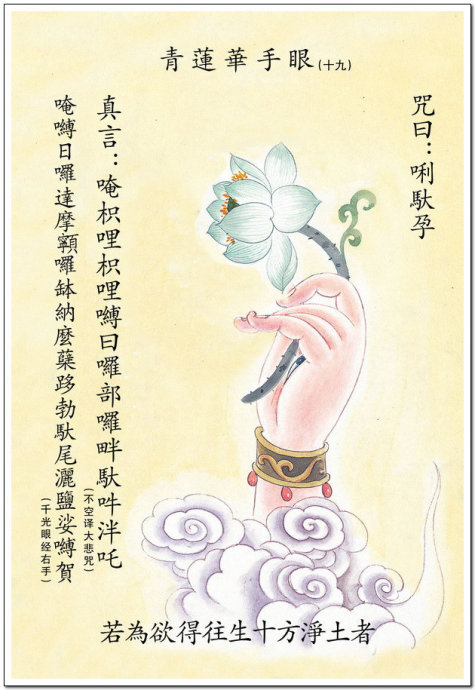 青蓮華手眼(十九)
咒曰：唎馱孕
真言：唵枳哩枳哩嚩日囉部囉畔馱吽泮吒
(不空译大悲咒)
唵嚩日囉達摩顙囉缽納麼蘖跢勃馱尾灑鹽娑嚩賀
(千光眼经右手)
若為欲得往生十方淨土者